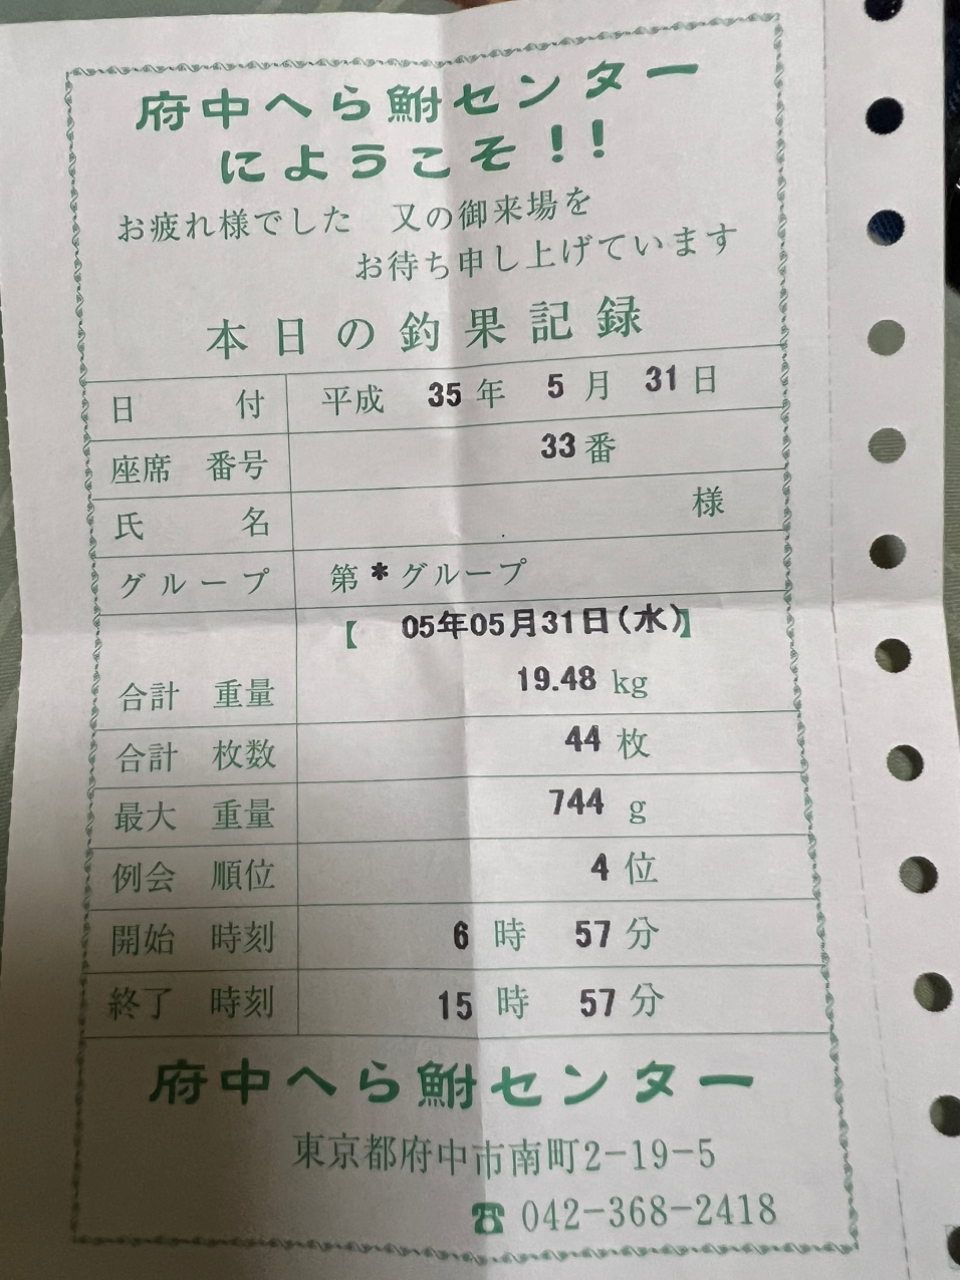 府中へら鮒センター
にようこそ!!
お疲れ様でした 又の御来場を
お待ち申し上げています
本日の釣果記録
日付 平成 35年 5月 31日
座席番号 33番
氏名 様
グループ 第*グループ
【 05年05月31日(水)】
合計重量 19.48 kg
合計枚数 44 枚
最大重量 744 g
例会順位 4 位
開始時刻 6 時 57 分
終了時刻 15 時 57 分
府中へら鮒センター
東京都府中市南町2-19-5
☎ 042-368-2418